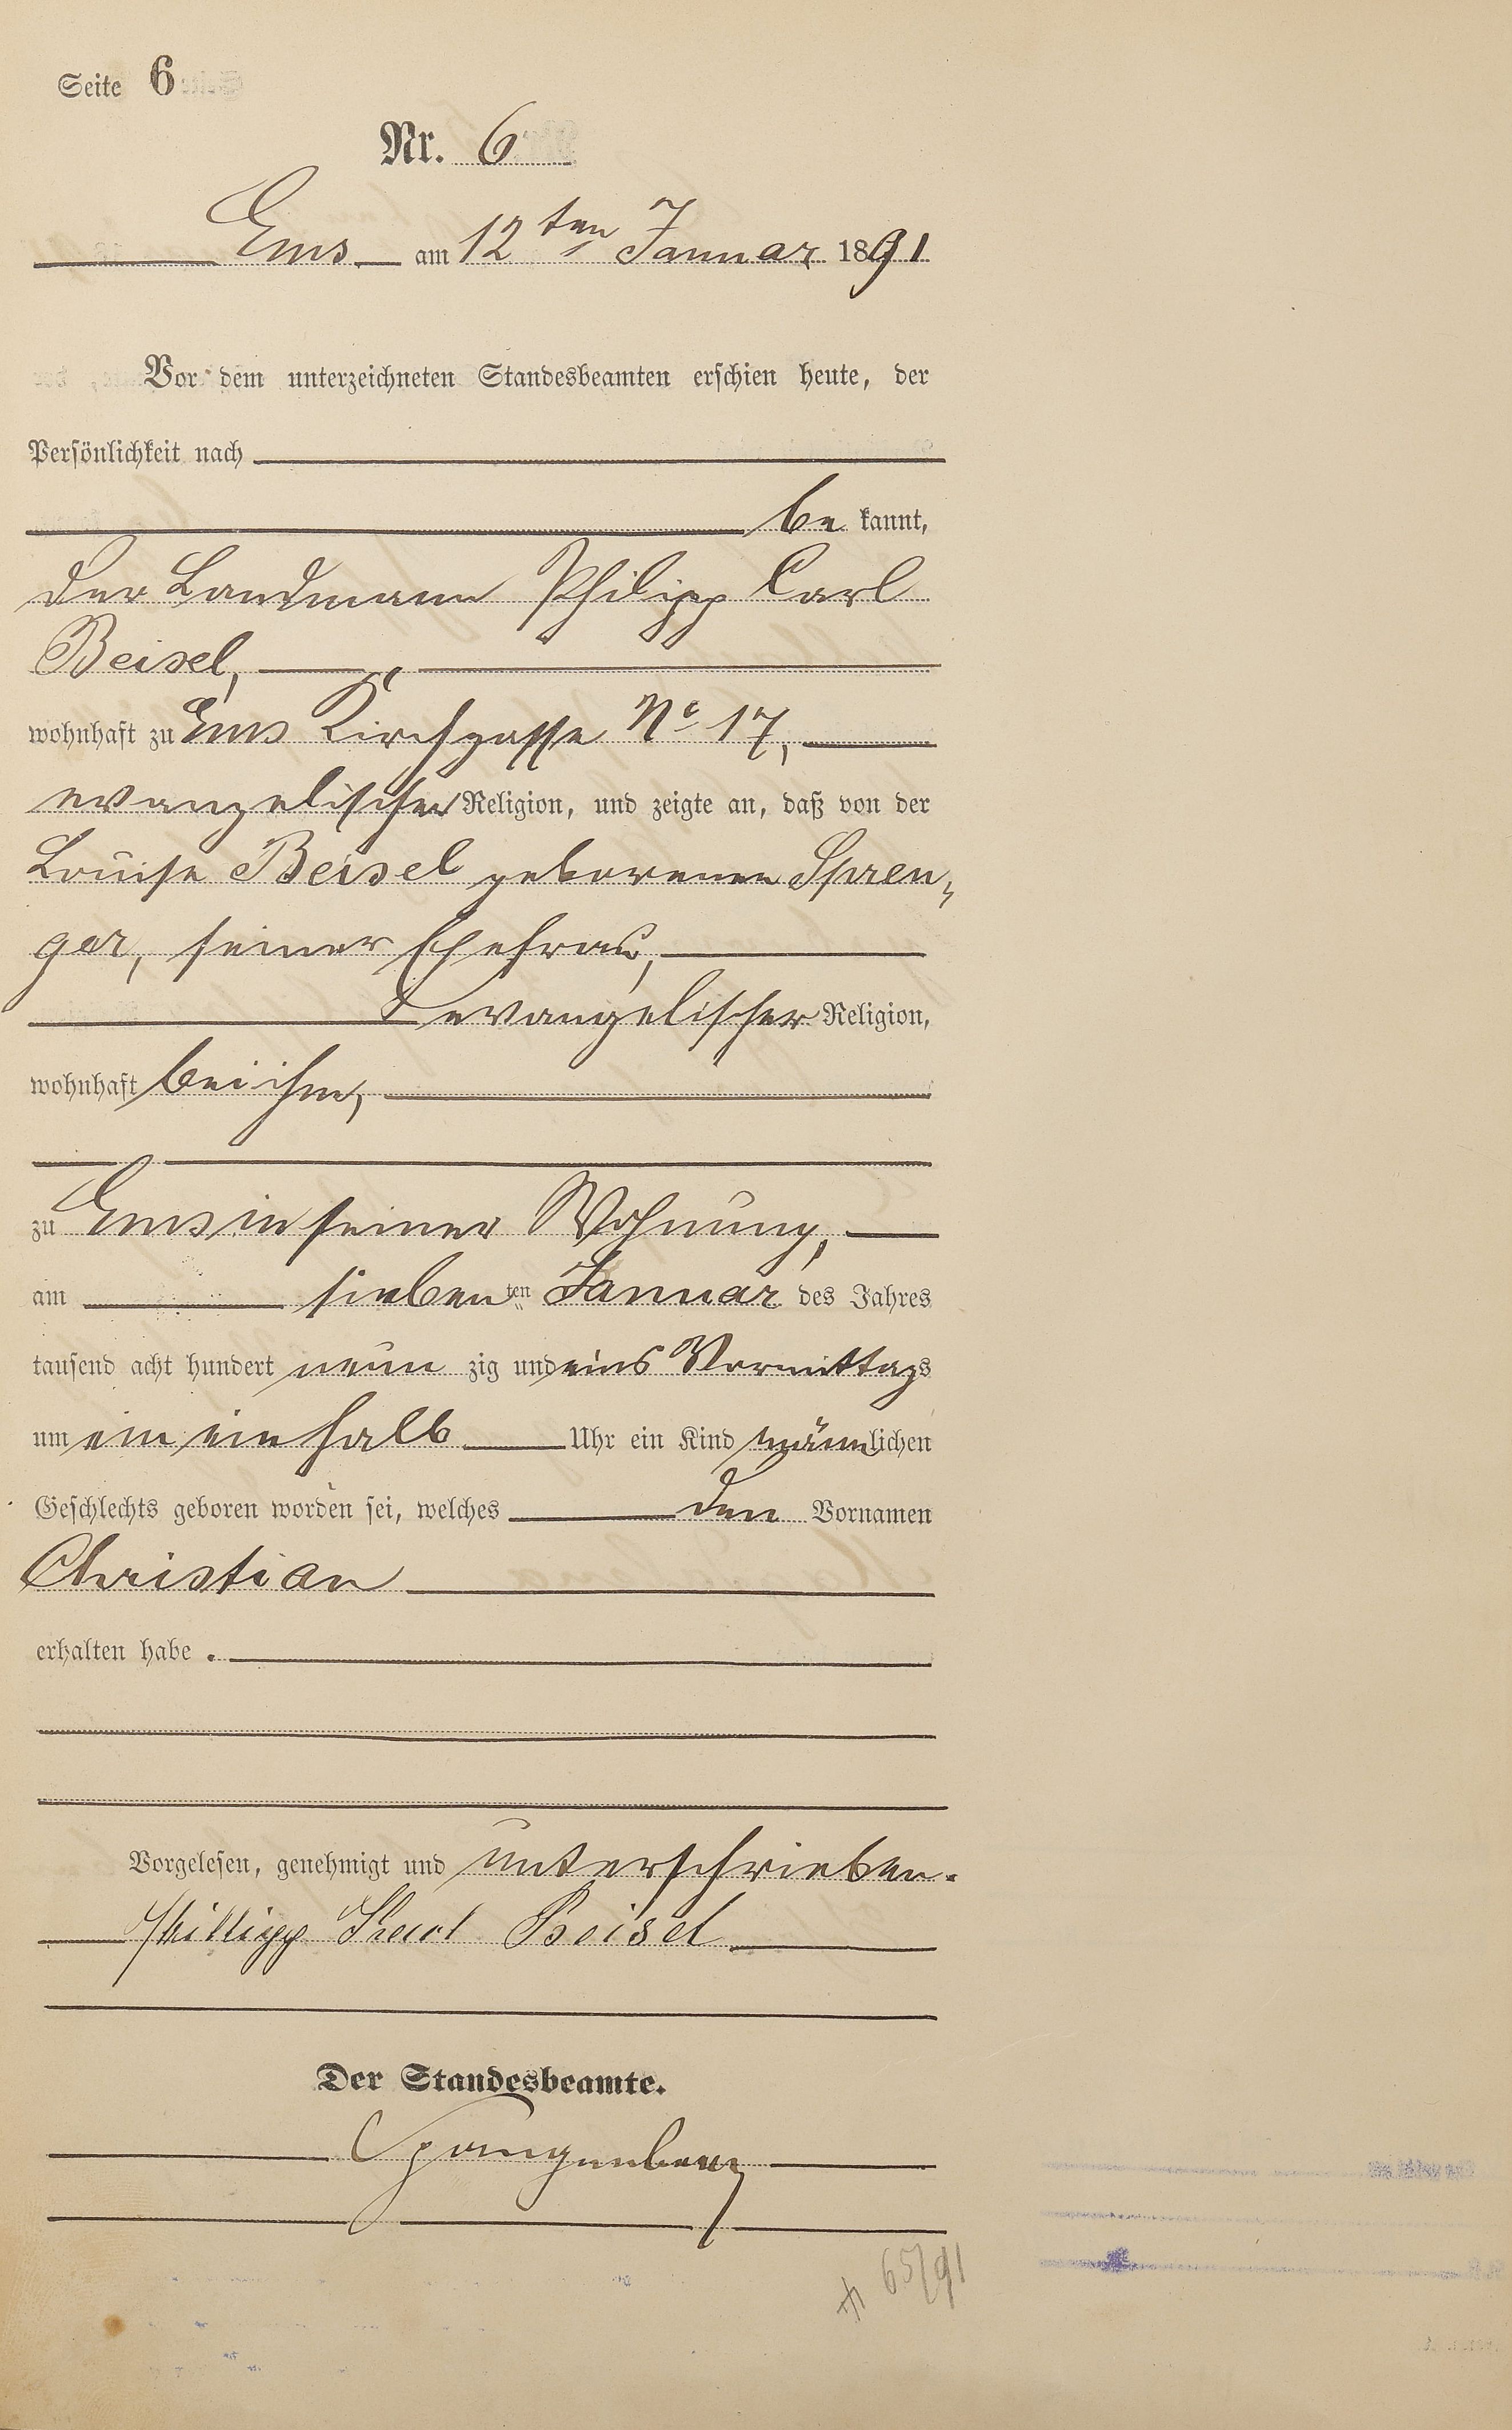 Seite 6
Nr. 6
Ems am 12ten Januar 1891
Vor dem unterzeichneten Standesbeamten erschien heute, der
Persönlichkeit nach
be kannt,
der Landmann Philipp Carl
Beisel,
wohnhaft zu Ems Kirchgasse No 17,
evangelischer Religion, und zeigte an, daß von der
Louise Beisel geborenen Spren-
ger, seiner Ehefrau,
evangelischer Religion,
wohnhaft bei ihm,
zu Ems in seiner Wohnung,
am siebenten Januar des Jahres
tausend acht hundert neun zig und eins Vormittags
um ein ein halb Uhr ein Kind männlichen
Geschlechts geboren worden sei, welches den Vornamen
Christian
erhalten habe.
Vorgelesen, genehmigt und unterschrieben.
Phillipp Karl Beisel
Der Standesbeamte.
Spangenberg
65/91